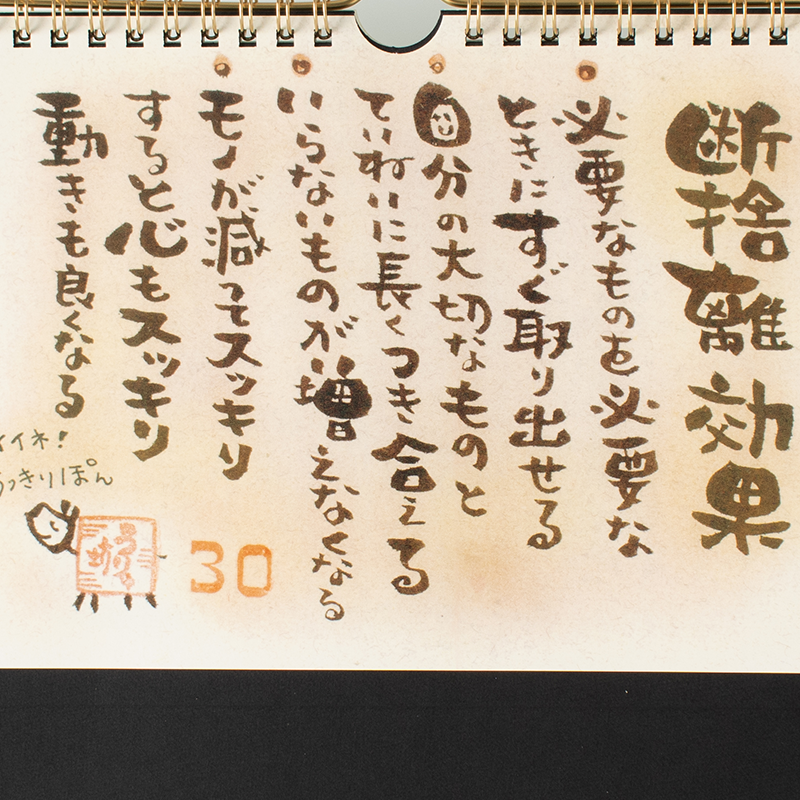 断捨離効果
必要なものを必要な
ときにすぐ取り出せる
自分の大切なものと
ていねいに長くつき合える
いらないものが増えなくなる
モノが減ってスッキリ
すると心もスッキリ
動きも良くなる
イイネ!
っきりぽん
30